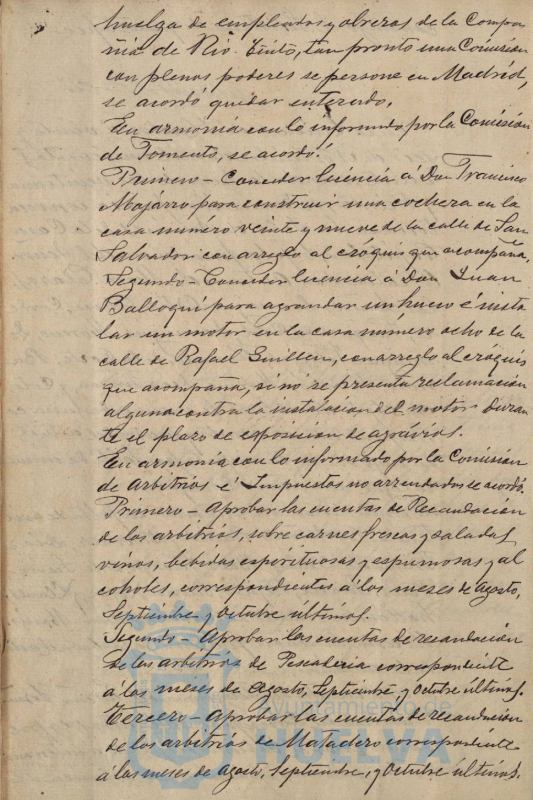 huelga de empleados y obreros de la Compa
ñia de Rio-Tinto, tan pronto una Comision
con plenos poderes se persone en Madrid,
se acordó quedar enterado.
En armonia con lo informado por la Comision
de Fomento, se acordó:
Primero - Conceder licencia á Don Francisco
Mojarro para construir una cochera en la
casa número veinte y nueve de la calle de San
Salvador con arreglo al cróquis que acompaña.
Segundo - Conceder licencia á Don Juan
Balloqui para agrandar un hueco é insta
lar un motor en la casa número ocho de la
calle de Rafael Guillen, con arreglo al cróquis
que acompaña, si no se presenta reclamación
alguna contra la instalacion del motor duran
te el plazo de exposicion de agrávios.
En armonia con lo informado por la Comision
de Arbitrios é Impuestos no arrendados se acordó.
Primero - Aprobar las cuentas de Recaudación
de los arbitrios, sobre carnes frescas y saladas
vinos, bebidas espirituosas y espumosas y al
coholes, correspondientes á los meses de Agosto,
Septiembre y Octubre últimos.
Segundo - Aprobar las cuentas de recaudación
de los arbitrios de Pescaderia correspondiente
á los meses de Agosto, Septiembre y Octubre últimos.
Tercero - Aprobar las cuentas de recaudación
de los arbitrios de Matadero correspondiente
á los meses de Agosto, Septiembre, y Octubre últimos.
Ayuntamiento de
HUELVA